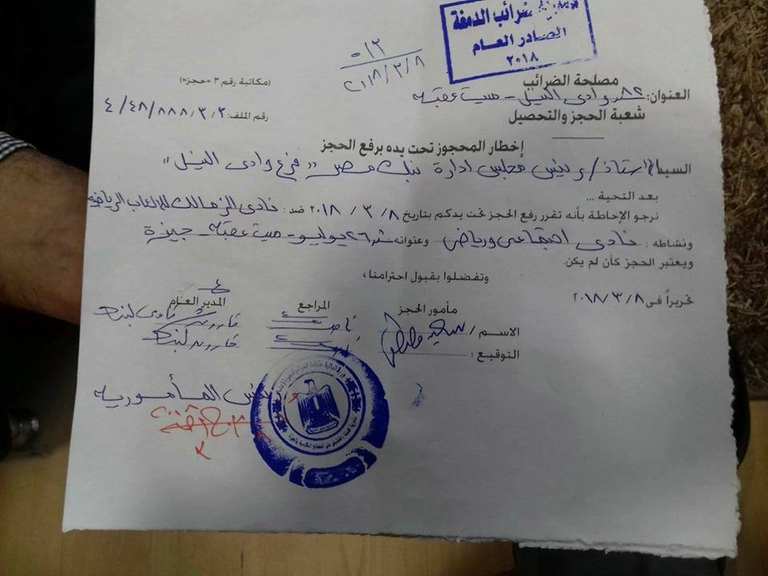 ضرائب الدمغة
الصادر العام
٢٠١٨
٥١٢
٢٠١٨/٣/٨
مصلحة الضرائب
(مكاتبة رقم ٣ «حجز»)
العنوان: ٨٢ ش وادى النيل - ميت عقبه
شعبة الحجز والتحصيل
رقم الملف: ٤/٤٨/٨٨٨/٣/٣
إخطار المحجوز تحت يده برفع الحجز
السيد الاستاذ/ رئيس مجلس ادارة بنك مصر " فرع وادى النيل "
بعد التحية ...
نرجو الإحاطة بأنه تقرر رفع الحجز تحت يدكم بتاريخ ٨ / ٣ / ٢٠١٨ ضد : نادى الزمالك للالعاب الرياضيه
ونشاطه : نادى اجتماعى ورياضى وعنوانه ش ٢٦ يوليو - ميت عقبه - جيزة
ويعتبر الحجز كأن لم يكن
وتفضلوا بقبول احترامنا ،
تحريراً فى ٢٠١٨/٣/٨
مأمور الحجز
المراجع
المدير العام
الاسم /
التوقيع :
رئيس المأمورية